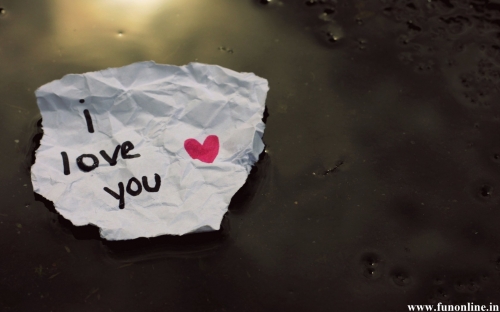 i
love
you
www.funonline.in